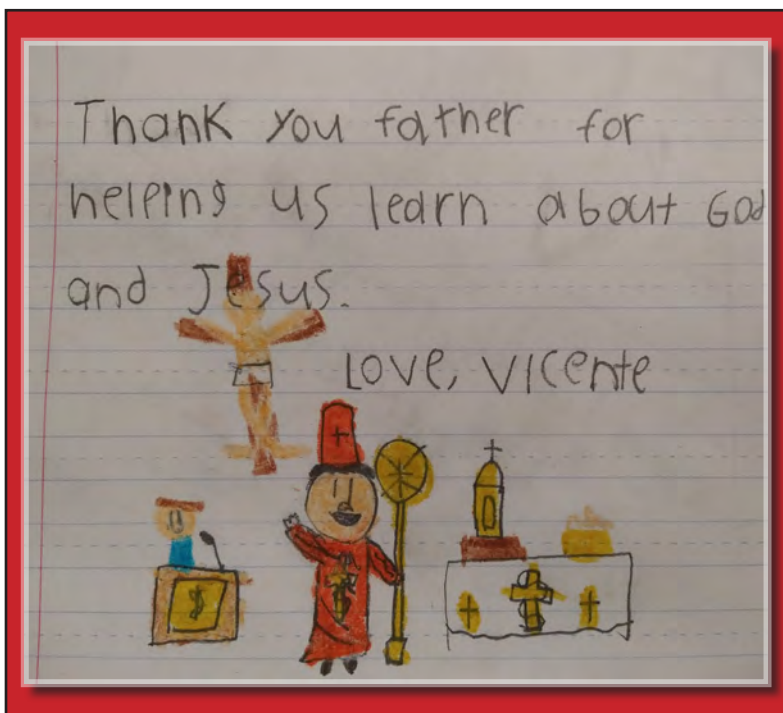 Thank you father for
helping us learn about God
and Jesus.
Love, Vicente